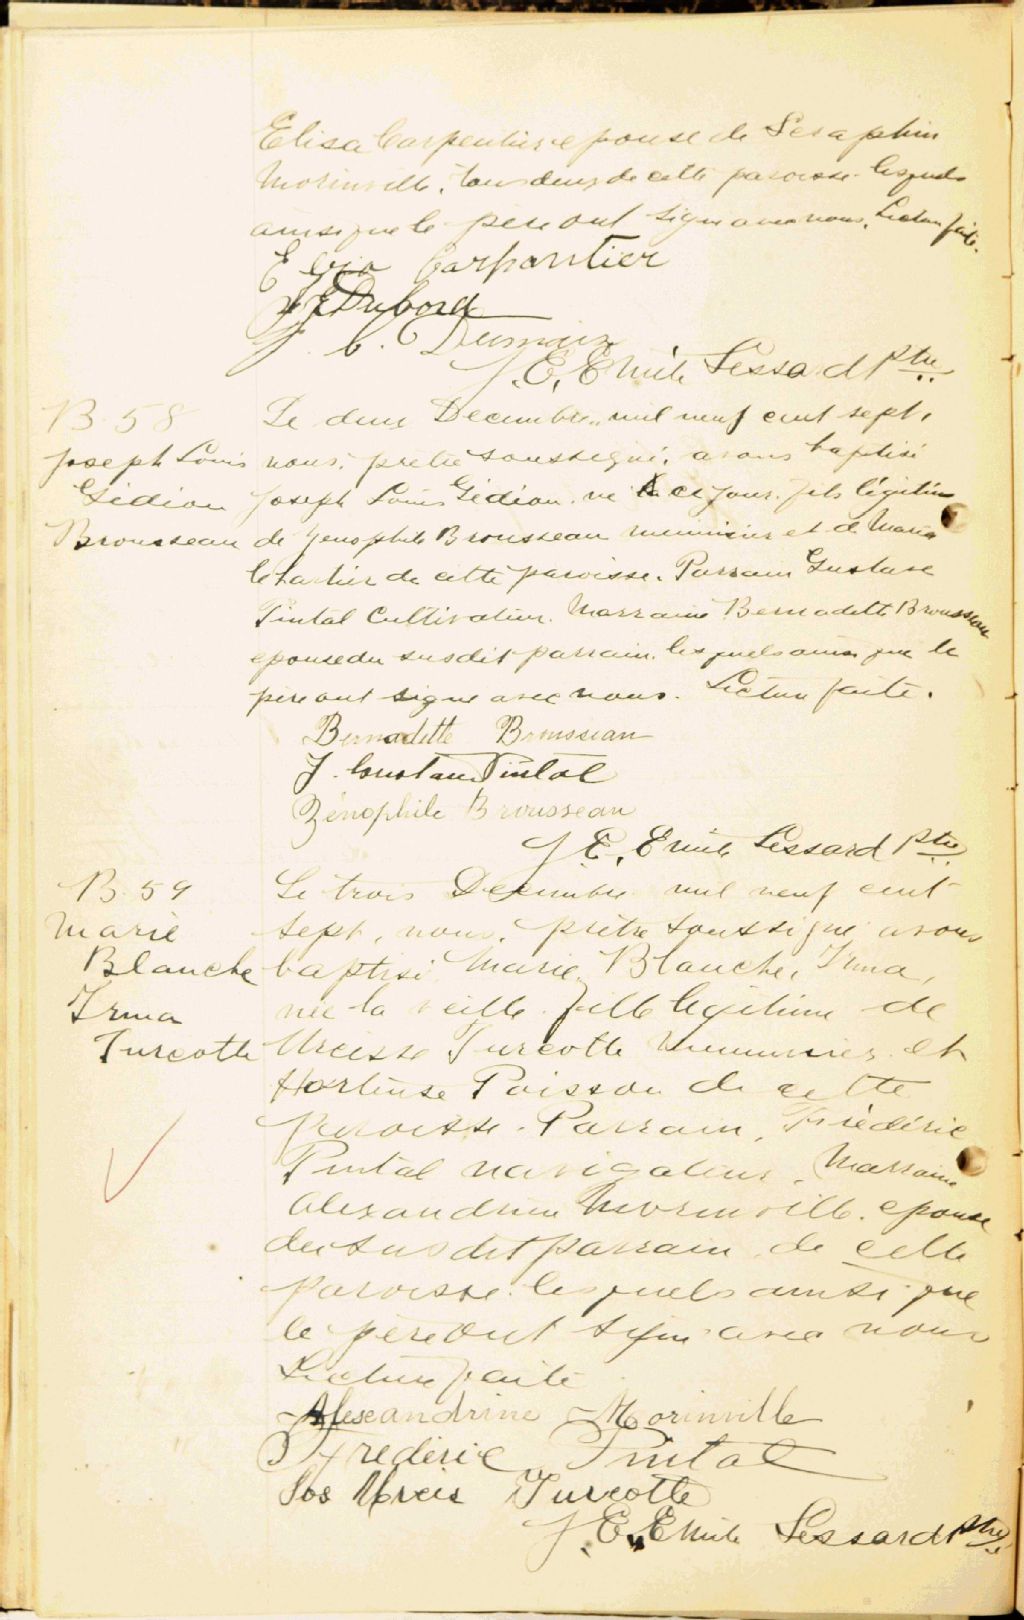 Elisa Carpentier epouse de Seraphin
Morinville, tous deux de cette paroisse lesquels
ainsi que le père ont signé avec nous. Lecture faite.
Carpentier
Dubord
J. E. Emile Lessard Ptre
B. 58
Joseph Louis
Gédion
Brousseau
Le deux Decembre, mil neuf cent sept,
nous, prêtre soussigné, avons baptisé
Joseph Louis Gédion né ce jour, fils légitime
de Zenophile Brousseau menuisier et de Maria
de cette paroisse. Parrain Gustave
Pintal Cultivateur. Marraine Bernadette Brousseau
epouse du susdit parrain lesquels ainsi que le
père ont signé avec nous. Lecture faite.
Bernadette Brousseau
J. Pintal
Zénophile Brousseau
J. E. Emile Lessard Ptre
B. 59
Marie
Blanche
Irma
Turcotte
Le trois Decembre mil neuf cent
sept, nous, prêtre soussigné avons
baptisé Marie, Blanche, Irma,
née la veille fille légitime de
Turcotte menuisier et
Hortense Poisson de cette
paroisse. Parrain, Frédéric
Pintal navigateur, Marraine
Alexandrine Morinville, epouse
du susdit parrain de cette
paroisse lesquels ainsi que
le père ont signé avec nous
Lecture faite
Alexandrine Morinville
Frédéric Pintal
Jos Turcotte
J. E. Emile Lessard Ptre